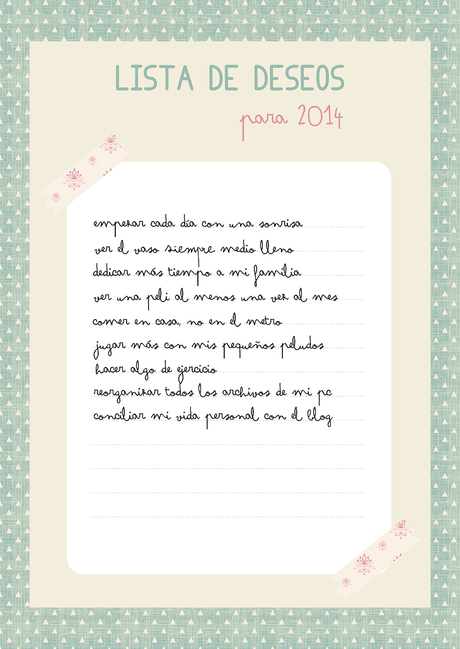 LISTA DE DESEOS
para 2014
empezar cada día con una sonrisa
ver el vaso siempre medio lleno
dedicar más tiempo a mi familia
ver una peli al menos una vez al mes
comer en casa, no en el metro
jugar más con mis pequeños peludos
hacer algo de ejercicio
reorganizar todos los archivos de mi pc
conciliar mi vida personal con el blog